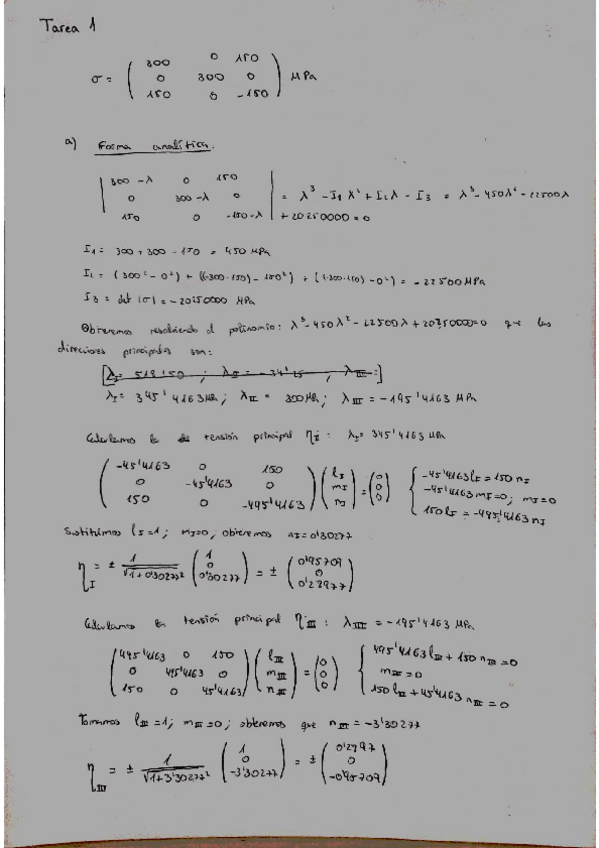 Tarea 1
σ = ( 300 0 150
0 300 0
150 0 -150 ) MPa
a) Forma analítica.
| 300-λ 0 150
0 300-λ 0
150 0 -150-λ | = λ³ - I₁ λ² + I₂ λ - I₃ = λ³ - 450λ² - 22500λ
+ 20250000 = 0
I₁ = 300 + 300 - 150 = 450 MPa
I₂ = (300² - 0²) + ((-300·150) - 150²) + (-300·150) - 0²) = -22500 MPa
I₃ = det |σ| = -20250000 MPa
Obtenemos resolviendo el polinomio: λ³ - 450λ² - 22500λ + 20250000 = 0 que las
direcciones principales son:
λI = 345'4163 MPa; λII = 300 MPa; λIII = -195'4163 MPa
Calculamos la tensión principal ηI: λI = 345'4163 MPa
( -45'4163 0 150
0 -45'4163 0
150 0 -495'4163 ) ( lI mI nI ) = ( 0 0 0 ) { -45'4163 lI = 150 nI
-45'4163 mI = 0; mI = 0
150 lI = -495'4163 nI
Sustituimos lI = 1; mI = 0, obtenemos nI = 0'30277
ηI = ± 1/√1+0'30277² ( 1 0 0'30277 ) = ± ( 0'95709 0 0'28977 )
Calculamos la tensión principal ηIII: λIII = -195'4163 MPa
( 495'4163 0 150
0 495'4163 0
150 0 45'4163 ) ( lIII mIII nIII ) = ( 0 0 0 ) { 495'4163 lIII + 150 nIII = 0
mIII = 0
150 lIII + 45'4163 nIII = 0
Tomamos lIII = 1; mIII = 0; obtenemos que nIII = -3'30277
ηIII = ± 1/√1+3'30277² ( 1 0 -3'30277 ) = ± ( 0'2897 0 -0'95709 )